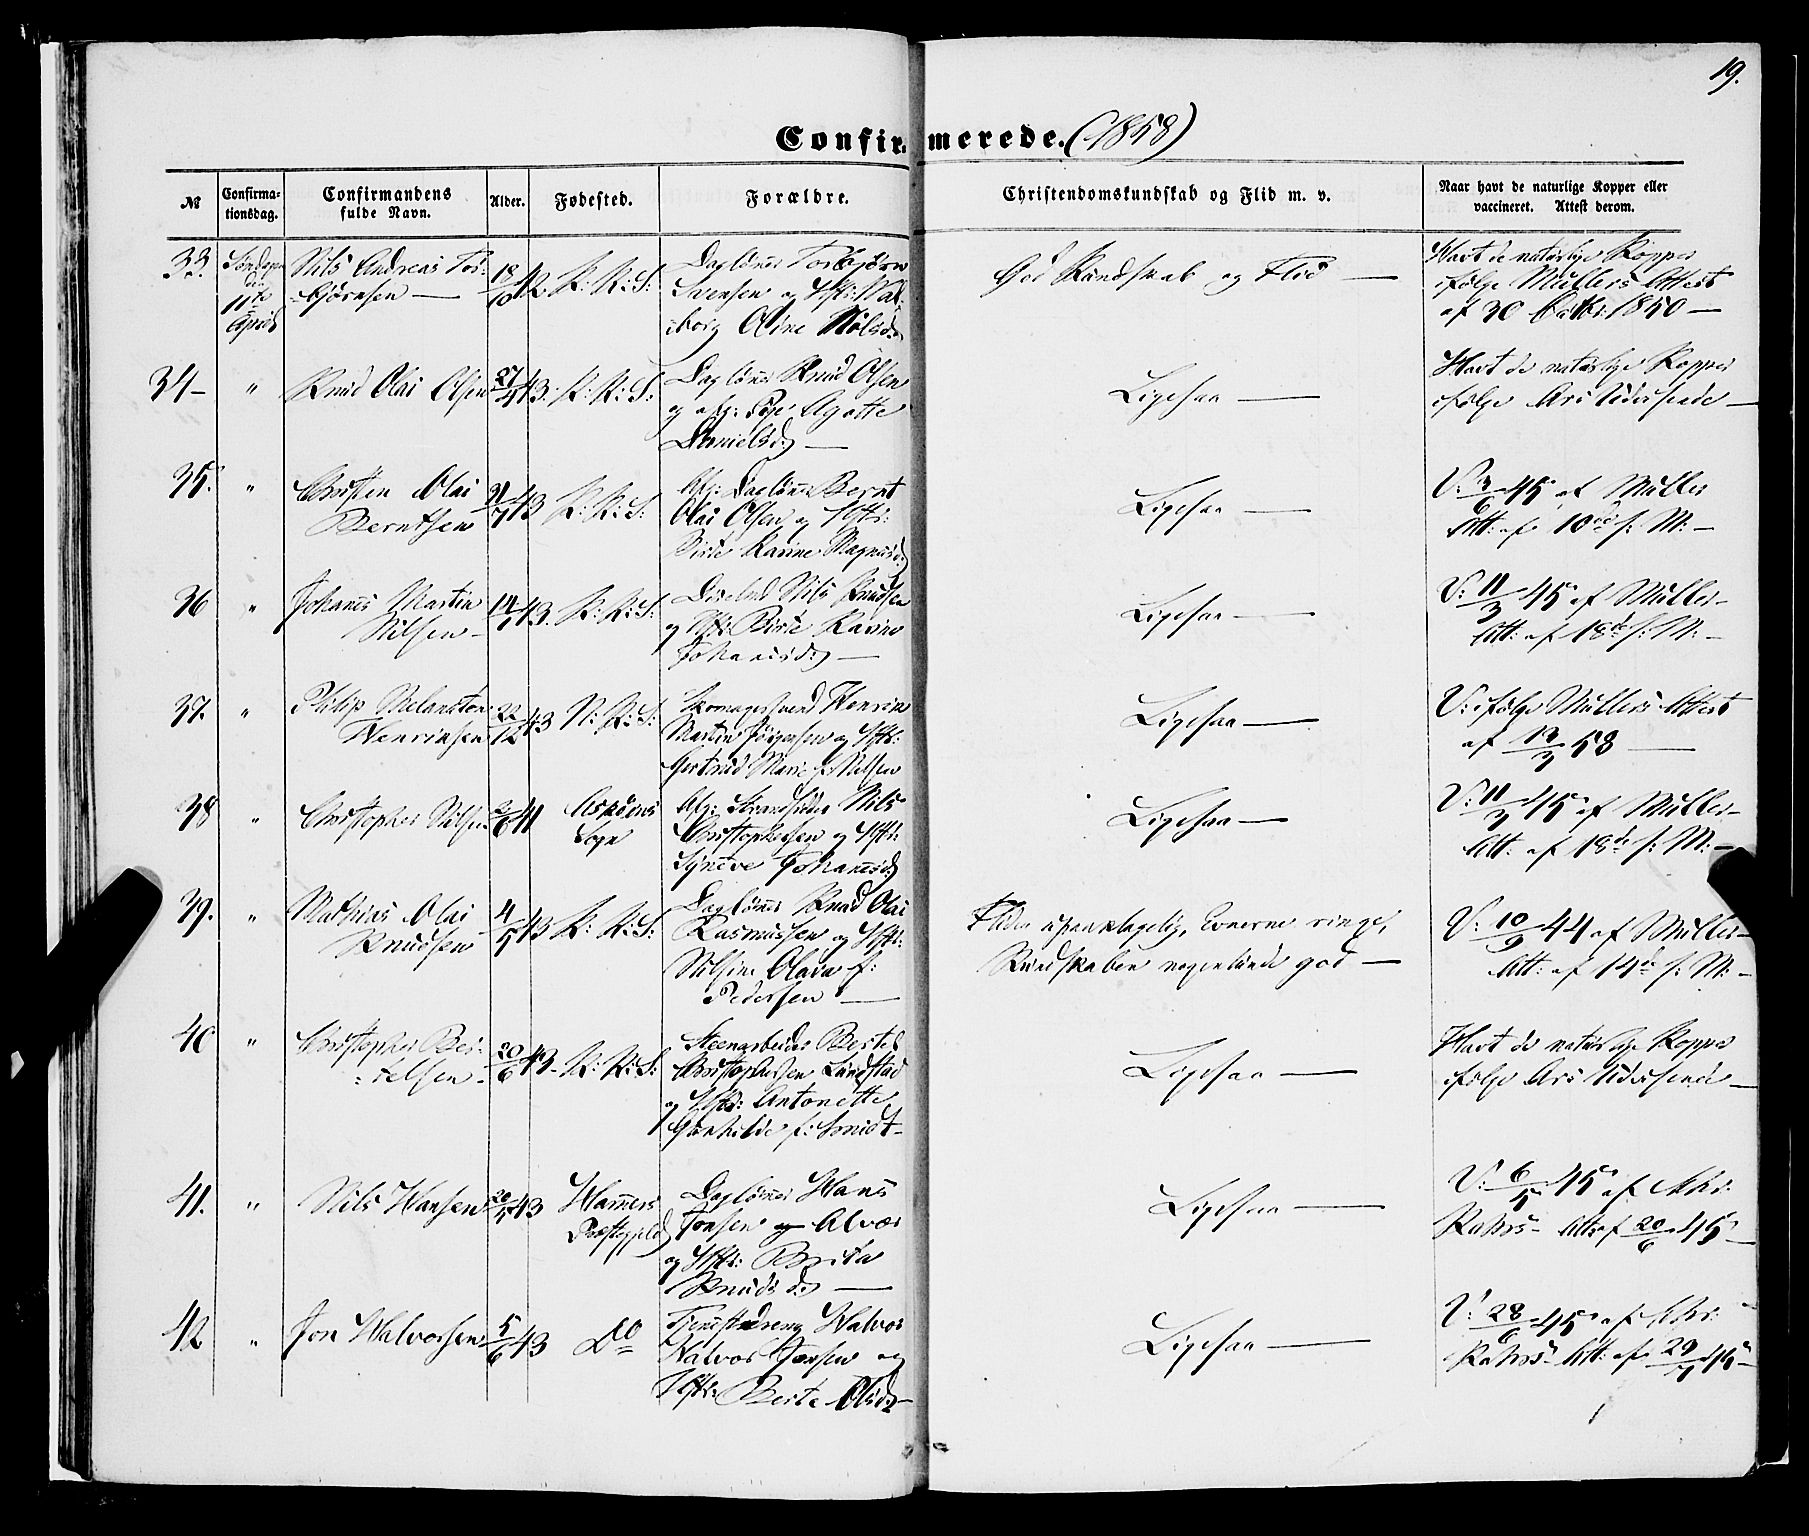 19.
Confirmerede. (1858)
№ Confirmationsdag. Confirmandens fulde Navn. Alder. Fødested. Forældre. Christendomskundskab og Flid m. v. Naar havt de naturlige Kopper eller vaccineret. Attest derom.
33. Søndagen den 11te April
Nils Andreas Tor-
=bjørnsen —
18/10 42 K: K: S:
Daglønner Torbjørn
Svensen og Hstr: Val-
=borg Oline Nilsd:
God Kundskab og Flid —
Havt de naturlige Kopper
ifølge Müllers Attest
af 30 1850 —
34 — " Knud Olai Olsen 27/4 43. K: K: S:
Daglønner Knud Olsen
og afg: Pige Agatte
Danielsd: —
Ligesaa —
Havt de naturlige Kopper
ifølge Ars Udvisende —
35. " Christen Olai
Berntsen
31/7 43 K: K: S:
Afg: Daglønner Bernt
Olai Olsen og Hstr:
Birte Karine Magnusd:
Ligesaa —
V: 3/6 45 af Müller
Att: af 10de s: M: —
36 " Johannes Martin
Nilsen —
14/7 43. K: K: S:
Nils Knudsen
og Hstr: Birte Karine
Johannesd: —
Ligesaa —
V: 11/3 45 af Müller —
Att: af 18de s: M: —
37. " Philip Melankton
Henriksen
22/12 43 N: K: S:
Skomagersvend Henrik
Martin Jörgensen og Hstr:
Gertrud Marie f: Nilsen
Ligesaa —
V: ifølge Müllers Attest
af 12/3 58 —
38 " Christopher Nilsen 2/6 41 Askøens
Sogn
Afg: Strandsidder Nils
Christophersen og Hstr:
Synneve Johannesd:
Ligesaa —
V: 11/3 45 af Müller —
Att: af 18de s: M: —
39. " Mathias Olai
Knudsen
4/5 43 K: K: S:
Daglønner Knud Olai
Rasmussen og Hstr:
Nilsine Olava f:
Pedersen —
Fliden upaaklagelig, Evnerne ringe,
Kundskaben nogenlunde god —
V: 10/9 44 af Müller —
Att: af 14de s: M: —
40 " Christopher Ber-
=telsen —
20/6 43 — K: K: S:
Steenarbeider Bertel
Christophersen Lundstad
og Hstr: Antonette
Gunhilde f: Smidt —
Ligesaa —
Havt de naturlige Kopper
ifølge Ars Udvisende —
41. " Nils Hansen 20/5 43 Hammers
Præstegjeld
Daglønner Hans
Jonsen Alvær
og Hstr: Brita
Knudsd: —
Ligesaa —
V: 6/5 45 af Chr:
Rahrs — Att: af 20/6 45 —
42 " Jon Halvorsen 5/6 43 Do
Tjenestedreng Halvor
Halvor Jonsen og
Hstr: Berte Olsd: —
Ligesaa —
V: 28/6 45 af Chr:
Rahrs Att: af 29/7 45 —